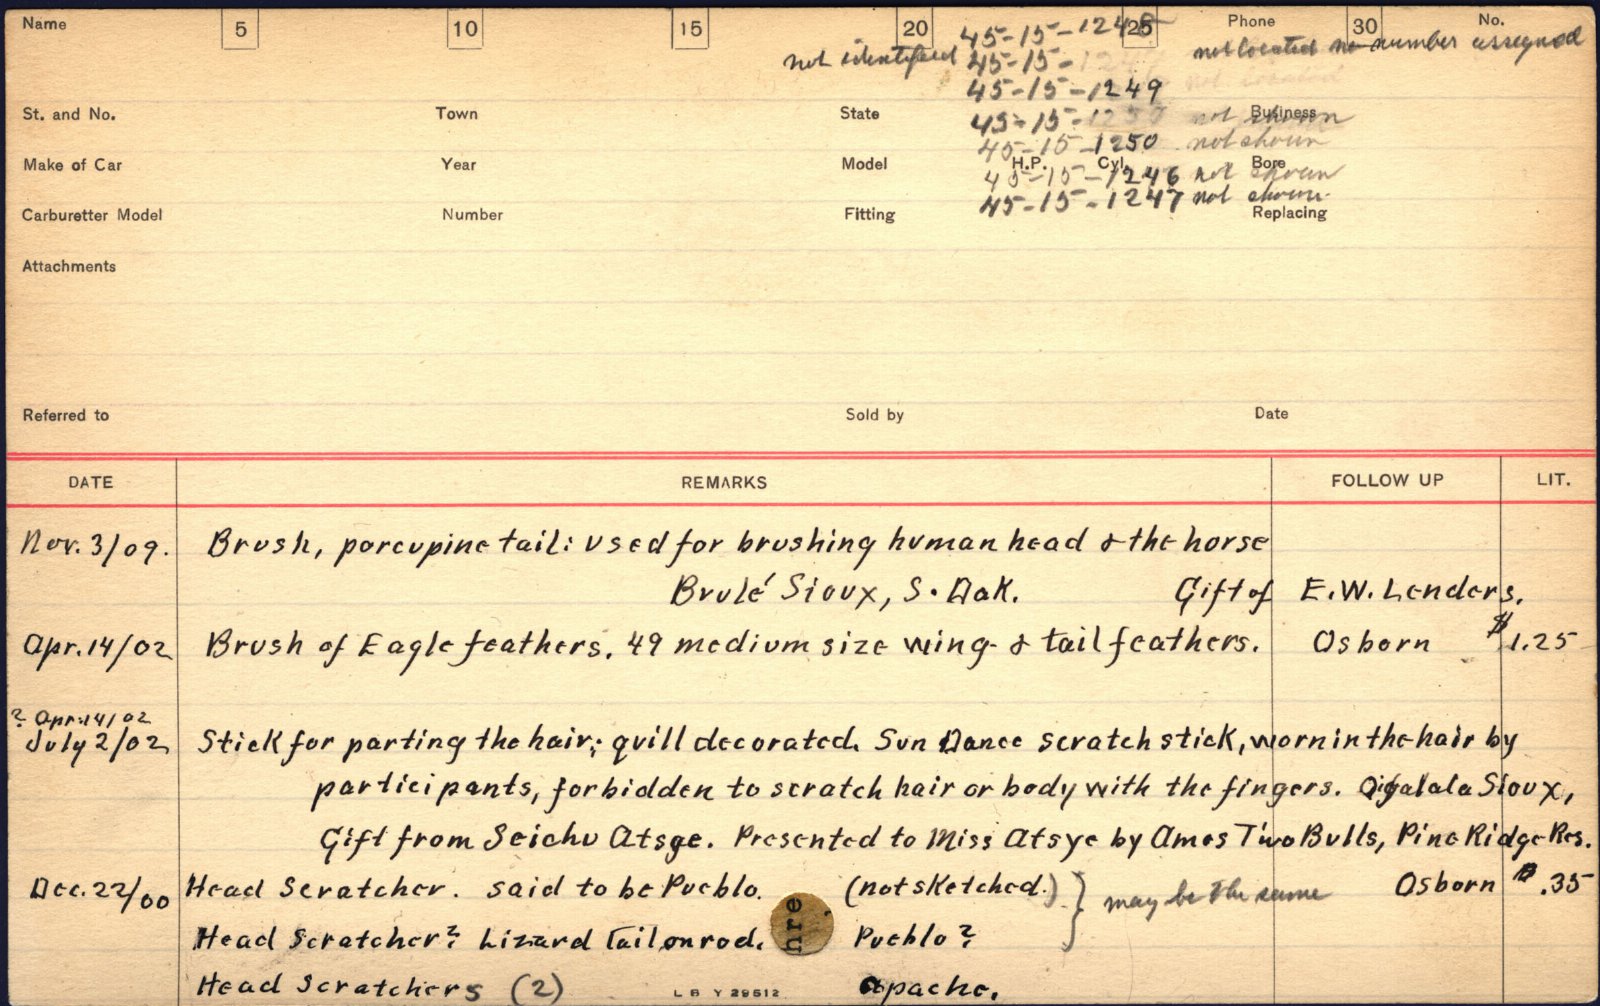 Name 5 10 15 20 45-15-1248 25 Phone 30 No.
not identified 45-15- not located no number assigned
45-15-1249 not located
St. and No. Town State 45-15- not shown Business
45-15-1250 not shown
Make of Car Year Model H.P. Cyl. Bore
45-15-1246 not shown
45-15-1247 not shown
Carburetter Model Number Fitting Replacing
Attachments
Referred to Sold by Date
DATE REMARKS FOLLOW UP LIT.
Nov. 3/09. Brush, porcupine tail: used for brushing human head & the horse
Brulé Sioux, S. Dak. Gift of E.W. Lenders.
Apr. 14/02 Brush of Eagle feathers. 49 medium size wing- & tail feathers. Osborn $1.25
? Apr. 14/02
July 2/02 Stick for parting the hair; quill decorated. Sun Dance scratch stick, worn in the hair by
participants, forbidden to scratch hair or body with the fingers. Ogalala Sioux,
Gift from Seichu Atsye. Presented to Miss Atsye by Amos Two Bulls, Pine Ridge Res.
Dec. 22/00 Head Scratcher. said to be Pueblo. (not sketched.) } may be the same Osborn $.35
Head Scratcher? Lizard Tail on rod. hre Pueblo?
Head Scratchers (2) L B Y 29512 Apache.